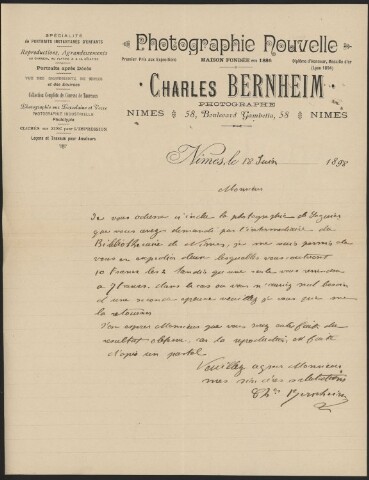 SPÉCIALITÉ
DE PORTRAITS INSTANTANÉS D'ENFANTS
Reproductions, Agrandissements
Portraits après Décès
VUE DES MONUMENTS DE NIMES
et des Environs
Collection Complète de Courses de Taureaux
Photographie sur Porcelaine et Verre
PHOTOGRAPHIE INDUSTRIELLE
CLICHÉS SUR ZINC POUR L'IMPRESSION
Leçons et Travaux pour Amateurs
Photographie Nouvelle
Premier Prix aux Expositions
MAISON FONDÉE EN 1888
Diplôme d'Honneur, Médaille d'or
(Lyon 1894)
CHARLES BERNHEIM
PHOTOGRAPHE
NIMES 58, Boulevard Gambetta, 58 NIMES
Nimes, le 12 Juin 1898
Monsieur
Je vous adresse ci inclus la photographie de
que vous avez demandé par l'intermédiaire du
Bibliothécaire de Nimes, je me suis permis de
vous en expédier deux lesquelles vous coutent
10 francs les 2 tandis que une seule vous
à 7 francs. dans le cas ou vous n'auriez nul besoin
d'une seconde epreuve veuillez je vous prie me
la retourner
J'ose esperer Monsieur que vous serez satisfait du
resultat obtenu, car la reproduction est faite
d'après un pastel.
Veuillez agréer Monsieur
mes sincères salutations
Ch Bernheim